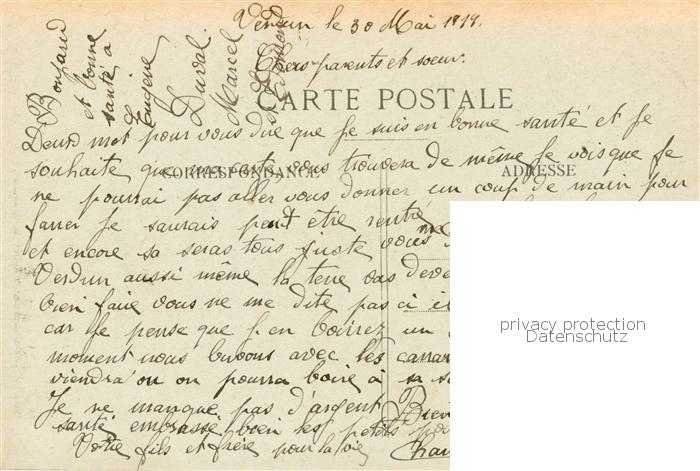 Verdun le 30 Mai 1919.
Chers parents et soeur.
CARTE POSTALE
Deux mot pour vous dire que Je suis en bonne santé et Je
CORRESPONDANCE
ADRESSE
souhaite que ma carte vous trouvera de même Je vois que Je
ne pourrai pas aller vous donner un coup de main pour
faner Je saurais peut être rentré
et encore sa seras tous Juste
Verdun aussi même la terre
bien faire vous ne me dite pas ci
car Je pense que J en boirez un
moment nous buvons avec les
viendra ou on pourra boire à sa
Je ne manque pas d'argent Bien
santé embrassé bien les petits
Votre fils et frère pour la vie
Bonjard
et bonne
santé a
Eugène
Duval
Marcel
privacy protection
Datenschutz